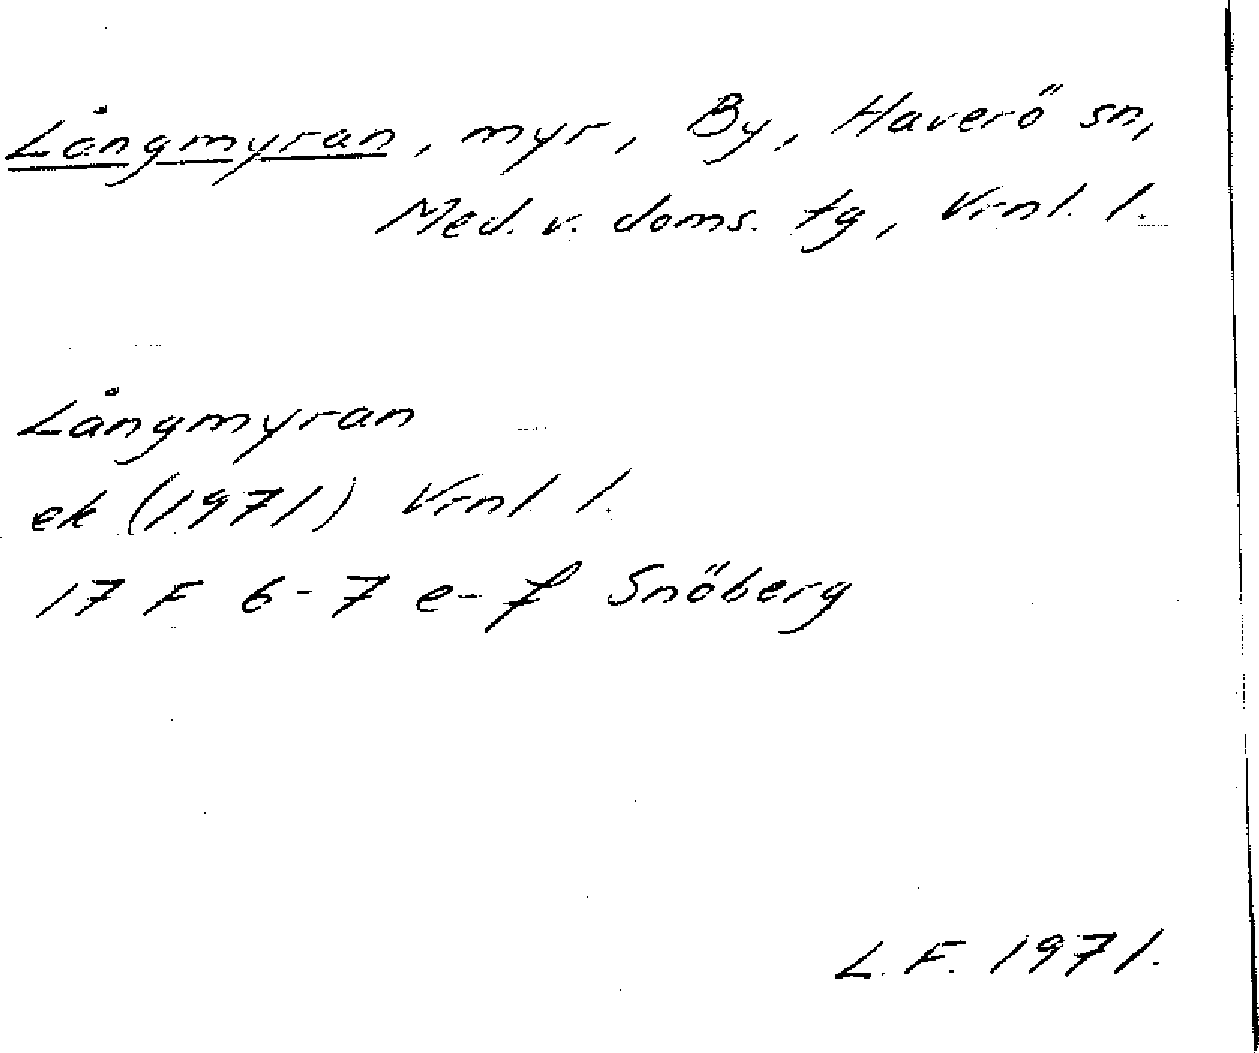 Långmyran, myr, By, Haverö sn,
Med. v. doms. tg, Vrnl. l.
Långmyran
ek (1971) Vrnl l.
17 F 6-7 e-f Snöberg
L.F. 1971.